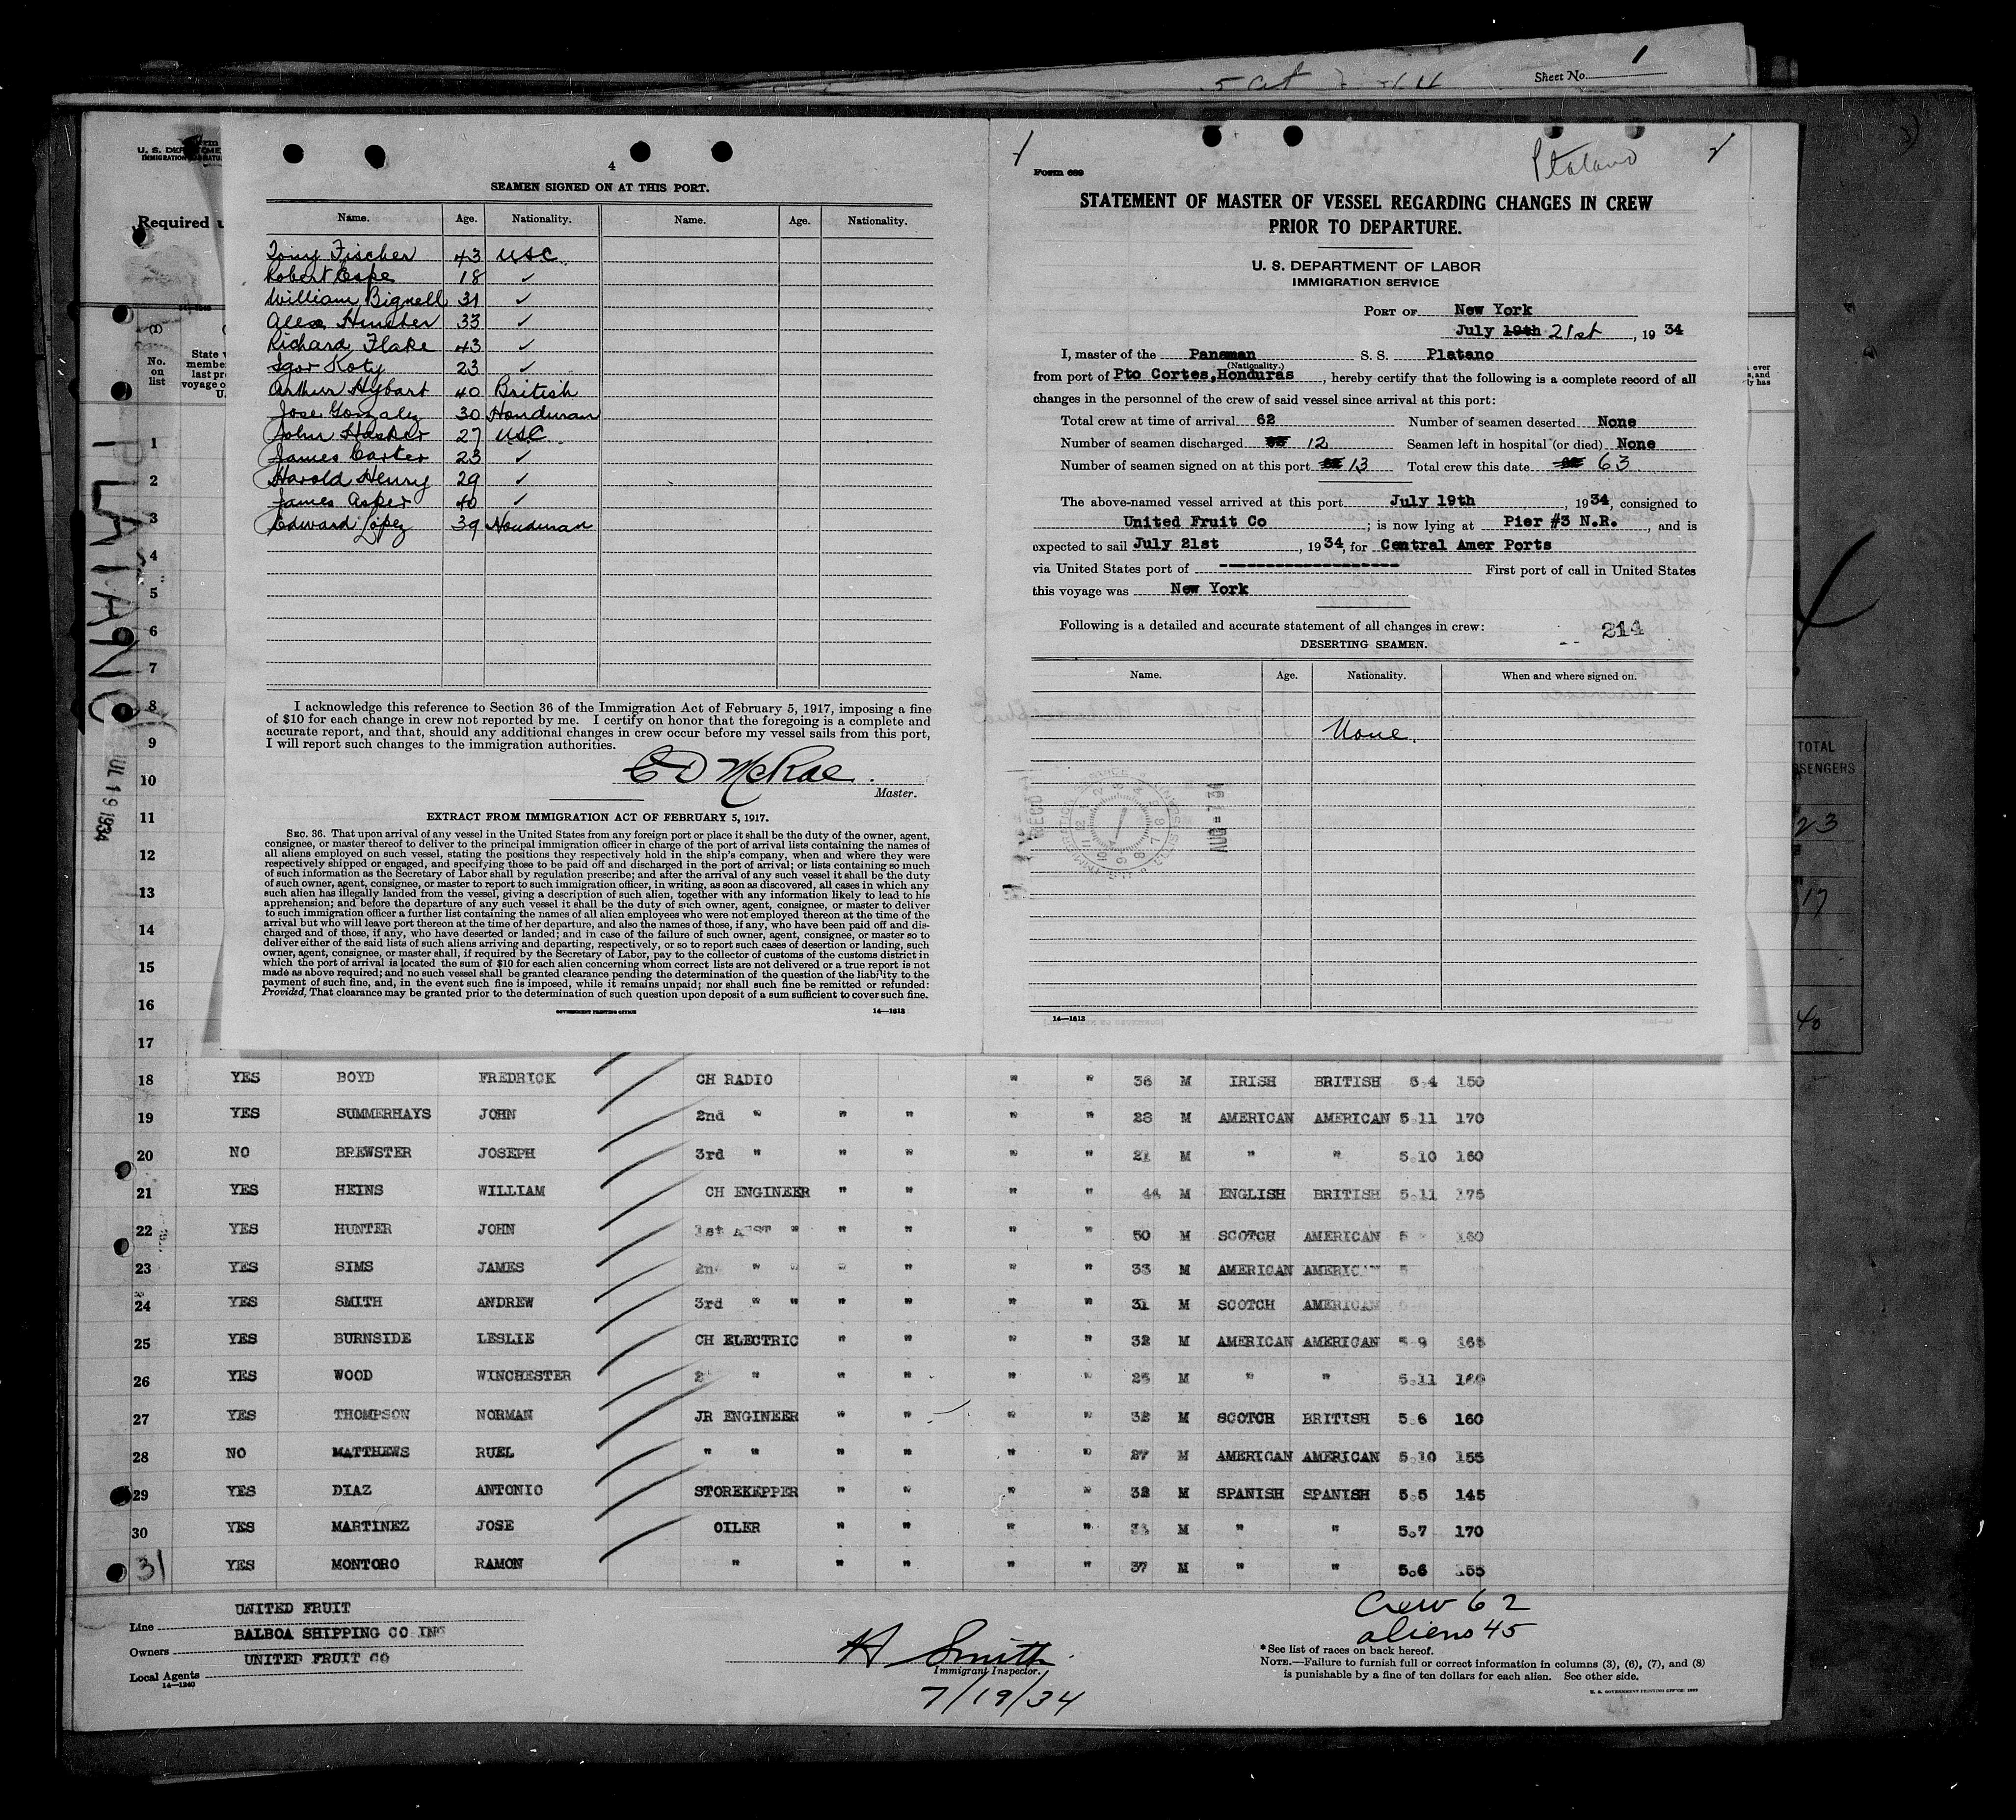 Sheet No. 1
U. S. DEPARTME
IMMIGRATION
Required u
No.
on
list
State
membe
last pr
voyage o
U.
PLATANO
JUL 19 1934
4
SEAMEN SIGNED ON AT THIS PORT.
Name. Age. Nationality. Name. Age. Nationality.
Tony Fischer 43 USC
Robert Espe 18 ✓
William Bignell 31 ✓
Alex 33 ✓
Richard Flake 43 ✓
Igor Koty 23 ✓
Arthur Hybart 40 British
Jose Gonzalez 30 Honduran
John Hasker 27 USC
James Carter 23 ✓
Harold Henry 29 ✓
James Asper 40 ✓
Edward Lopez 39 Honduran
I acknowledge this reference to Section 36 of the Immigration Act of February 5, 1917, imposing a fine
of $10 for each change in crew not reported by me. I certify on honor that the foregoing is a complete and
accurate report, and that, should any additional changes in crew occur before my vessel sails from this port,
I will report such changes to the immigration authorities.
E D McRae.
Master.
EXTRACT FROM IMMIGRATION ACT OF FEBRUARY 5, 1917.
SEC. 36. That upon arrival of any vessel in the United States from any foreign port or place it shall be the duty of the owner, agent,
consignee, or master thereof to deliver to the principal immigration officer in charge of the port of arrival lists containing the names of
all aliens employed on such vessel, stating the positions they respectively hold in the ship's company, when and where they were
respectively shipped or engaged, and specifying those to be paid off and discharged in the port of arrival; or lists containing so much
of such information as the Secretary of Labor shall by regulation prescribe; and after the arrival of any such vessel it shall be the duty
of such owner, agent, consignee, or master to report to such immigration officer, in writing, as soon as discovered, all cases in which any
such alien has illegally landed from the vessel, giving a description of such alien, together with any information likely to lead to his
apprehension; and before the departure of any such vessel it shall be the duty of such owner, agent, consignee, or master to deliver
to such immigration officer a further list containing the names of all alien employees who were not employed thereon at the time of the
arrival but who will leave port thereon at the time of her departure, and also the names of those, if any, who have been paid off and dis-
charged and of those, if any, who have deserted or landed; and in case of the failure of such owner, agent, consignee, or master so to
deliver either of the said lists of such aliens arriving and departing, respectively, or so to report such cases of desertion or landing, such
owner, agent, consignee, or master shall, if required by the Secretary of Labor, pay to the collector of customs of the customs district in
which the port of arrival is located the sum of $10 for each alien concerning whom correct lists are not delivered or a true report is not
made as above required; and no such vessel shall be granted clearance pending the determination of the question of the liability to the
payment of such fine, and, in the event such fine is imposed, while it remains unpaid; nor shall such fine be remitted or refunded:
Provided, That clearance may be granted prior to the determination of such question upon deposit of a sum sufficient to cover such fine.
GOVERNMENT PRINTING OFFICE 14—1613
Platano
Form 689
STATEMENT OF MASTER OF VESSEL REGARDING CHANGES IN CREW
PRIOR TO DEPARTURE.
U. S. DEPARTMENT OF LABOR
IMMIGRATION SERVICE
PORT OF New York
July 19th 21st, 1934
I, master of the Panaman S. S. Platano
(Nationality.)
from port of Pto Cortes, Honduras, hereby certify that the following is a complete record of all
changes in the personnel of the crew of said vessel since arrival at this port:
Total crew at time of arrival 62 Number of seamen deserted None
Number of seamen discharged 12 Seamen left in hospital (or died) None
Number of seamen signed on at this port 13 Total crew this date 63
The above-named vessel arrived at this port July 19th, 1934, consigned to
United Fruit Co; is now lying at Pier #3 N.R., and is
expected to sail July 21st, 1934, for Central Amer Ports
via United States port of -------------------- First port of call in United States
this voyage was New York
Following is a detailed and accurate statement of all changes in crew: 214
DESERTING SEAMEN.
Name. Age. Nationality. When and where signed on.
None.
AUG - 7 34
14—1613
TOTAL
SSENGERS
23
17
40
1
2
3
4
5
6
7
8
9
10
11
12
13
14
15
16
17
18 YES BOYD FREDRICK CH RADIO " " 36 M IRISH BRITISH 5.4 150
19 YES SUMMERHAYS JOHN 2nd " " " " " 28 M AMERICAN AMERICAN 5.11 170
20 NO BREWSTER JOSEPH 3rd " " " " " 21 M " " 5.10 160
21 YES HEINS WILLIAM CH ENGINEER " " " " 44 M ENGLISH BRITISH 5.11 175
22 YES HUNTER JOHN 1st ASST " " " " " 50 M SCOTCH AMERICAN 5
23 YES SIMS JAMES 2nd " " " " " " 33 M AMERICAN AMERICAN 5
24 YES SMITH ANDREW 3rd " " " " " " 31 M SCOTCH AMERICAN
25 YES BURNSIDE LESLIE CH ELECTRIC " " " " 32 M AMERICAN AMERICAN 5 9 165
26 YES WOOD WINCHESTER 2 " " " " " 25 M " " 5.11 160
27 YES THOMPSON NORMAN JR ENGINEER " " " " 32 M SCOTCH BRITISH 5.6 160
28 NO MATTHEWS RUEL " " " " " " 27 M AMERICAN AMERICAN 5.10 155
29 YES DIAZ ANTONIO STOREKEPPER " " " " 32 M SPANISH SPANISH 5.5 145
30 YES MARTINEZ JOSE OILER " " " " M " " 5.7 170
31 YES MONTORO RAMON " " " " " 37 M " " 5.6 155
Line UNITED FRUIT
Owners BALBOA SHIPPING CO INC
Local Agents UNITED FRUIT CO
14—1240
H Smith
Immigrant Inspector.
7/19/34
Crew 62
aliens 45
*See list of races on back hereof.
NOTE.—Failure to furnish full or correct information in columns (3), (6), (7), and (8)
is punishable by a fine of ten dollars for each alien. See other side.
U. S. GOVERNMENT PRINTING OFFICE